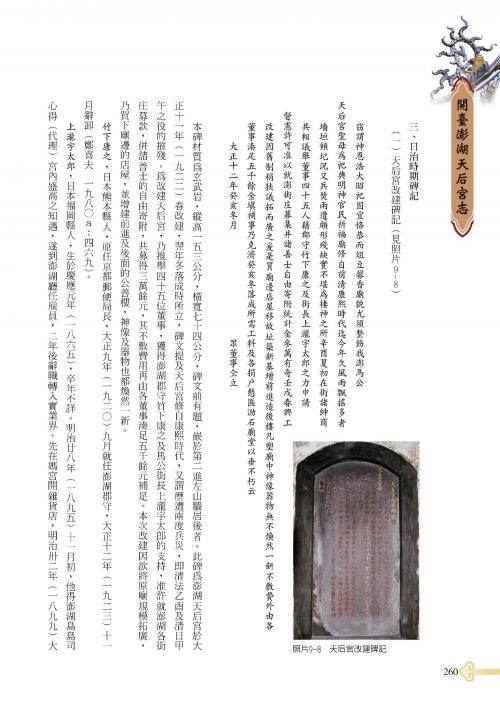 開臺澎湖天后宮志
三、日治時期碑記
(一)天后宮改建碑記(見照片9-8)
竊謂神恩浩大昭祀固宜恪恭而俎豆馨香廟貌尤須整飭我澎馬公
天后宮聖母為祀典明神官民祈福廟修自前清康熙時代迄今年久風雨飄搖多者
墻垣傾圮況又兵燹兩遭顱形殘缺實不堪為棲神之所辛酉夏初在街諸紳商
共相議舉董事四十五人藉郡守竹下康之及街長上瀧宇太郎之力申請
督憲許可准以就澎街庄募集并諸善士自由寄附統計金參萬有奇壬戌春興工
改建因舊制稍狹議拓而廣之爰是買廟邊店屋移故址築新基增前進造後樓凡塑廟中神像器物無不煥然一新不敷費外由各
董事湊足五千餘金填補事乃克濟癸亥冬落成所需工料及各捐户懸匾泐石廟堂以垂不朽云
大正十二年癸亥冬月
眾董事仝立
本碑材質為玄武岩,縱高一五三公分,橫寬七十四公分,碑文前有題,嵌於第二進左山牆居後者。此碑為澎湖天后宮於大
正十一年(一九二二)春改建,翌年冬落成時所立,碑文提及天后宮修自康熙時代,又謂歷遭兩度兵災,即清法乙酉及清日甲
午之役的摧殘。為改建天后宮,乃推舉四十五位董事,獲得澎湖郡守竹下康之及馬公街長上瀧宇太郎的支持,准許就澎湖各街
庄募款,併諸善士的自由寄附,共募得三萬餘元,其不敷費用再由各董事湊足五千餘元補足。本次改建因欲將原廟規模拓廣,
乃買下廟邊的店屋,並增建前進及後面的公善樓,神像及器物也都煥然一新。
竹下康之,日本熊本縣人,原任京都郵便局長,大正九年(一九二〇)九月就任澎湖郡守,大正十二年(一九二三)十一
月辭卸(鄭喜夫 一九八〇a:四六九)。
上瀧宇太郎,日本福岡縣人,生於慶應元年(一八六五),卒年不詳。明治廿八年(一八九五)十一月初,他得澎湖島島司
心得(代理)宮內盛高之知遇,遂到澎湖廳任雇員,二年後辭職轉入實業界。先在媽宮開雜貨店,明治卅二年(一八九九)大
照片9-8 天后宮改建碑記
260